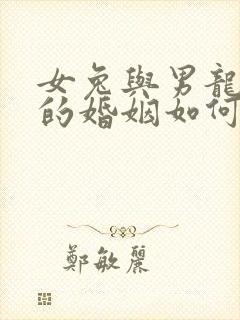 女兔與男龍
的婚姻如何
鄭敏麗